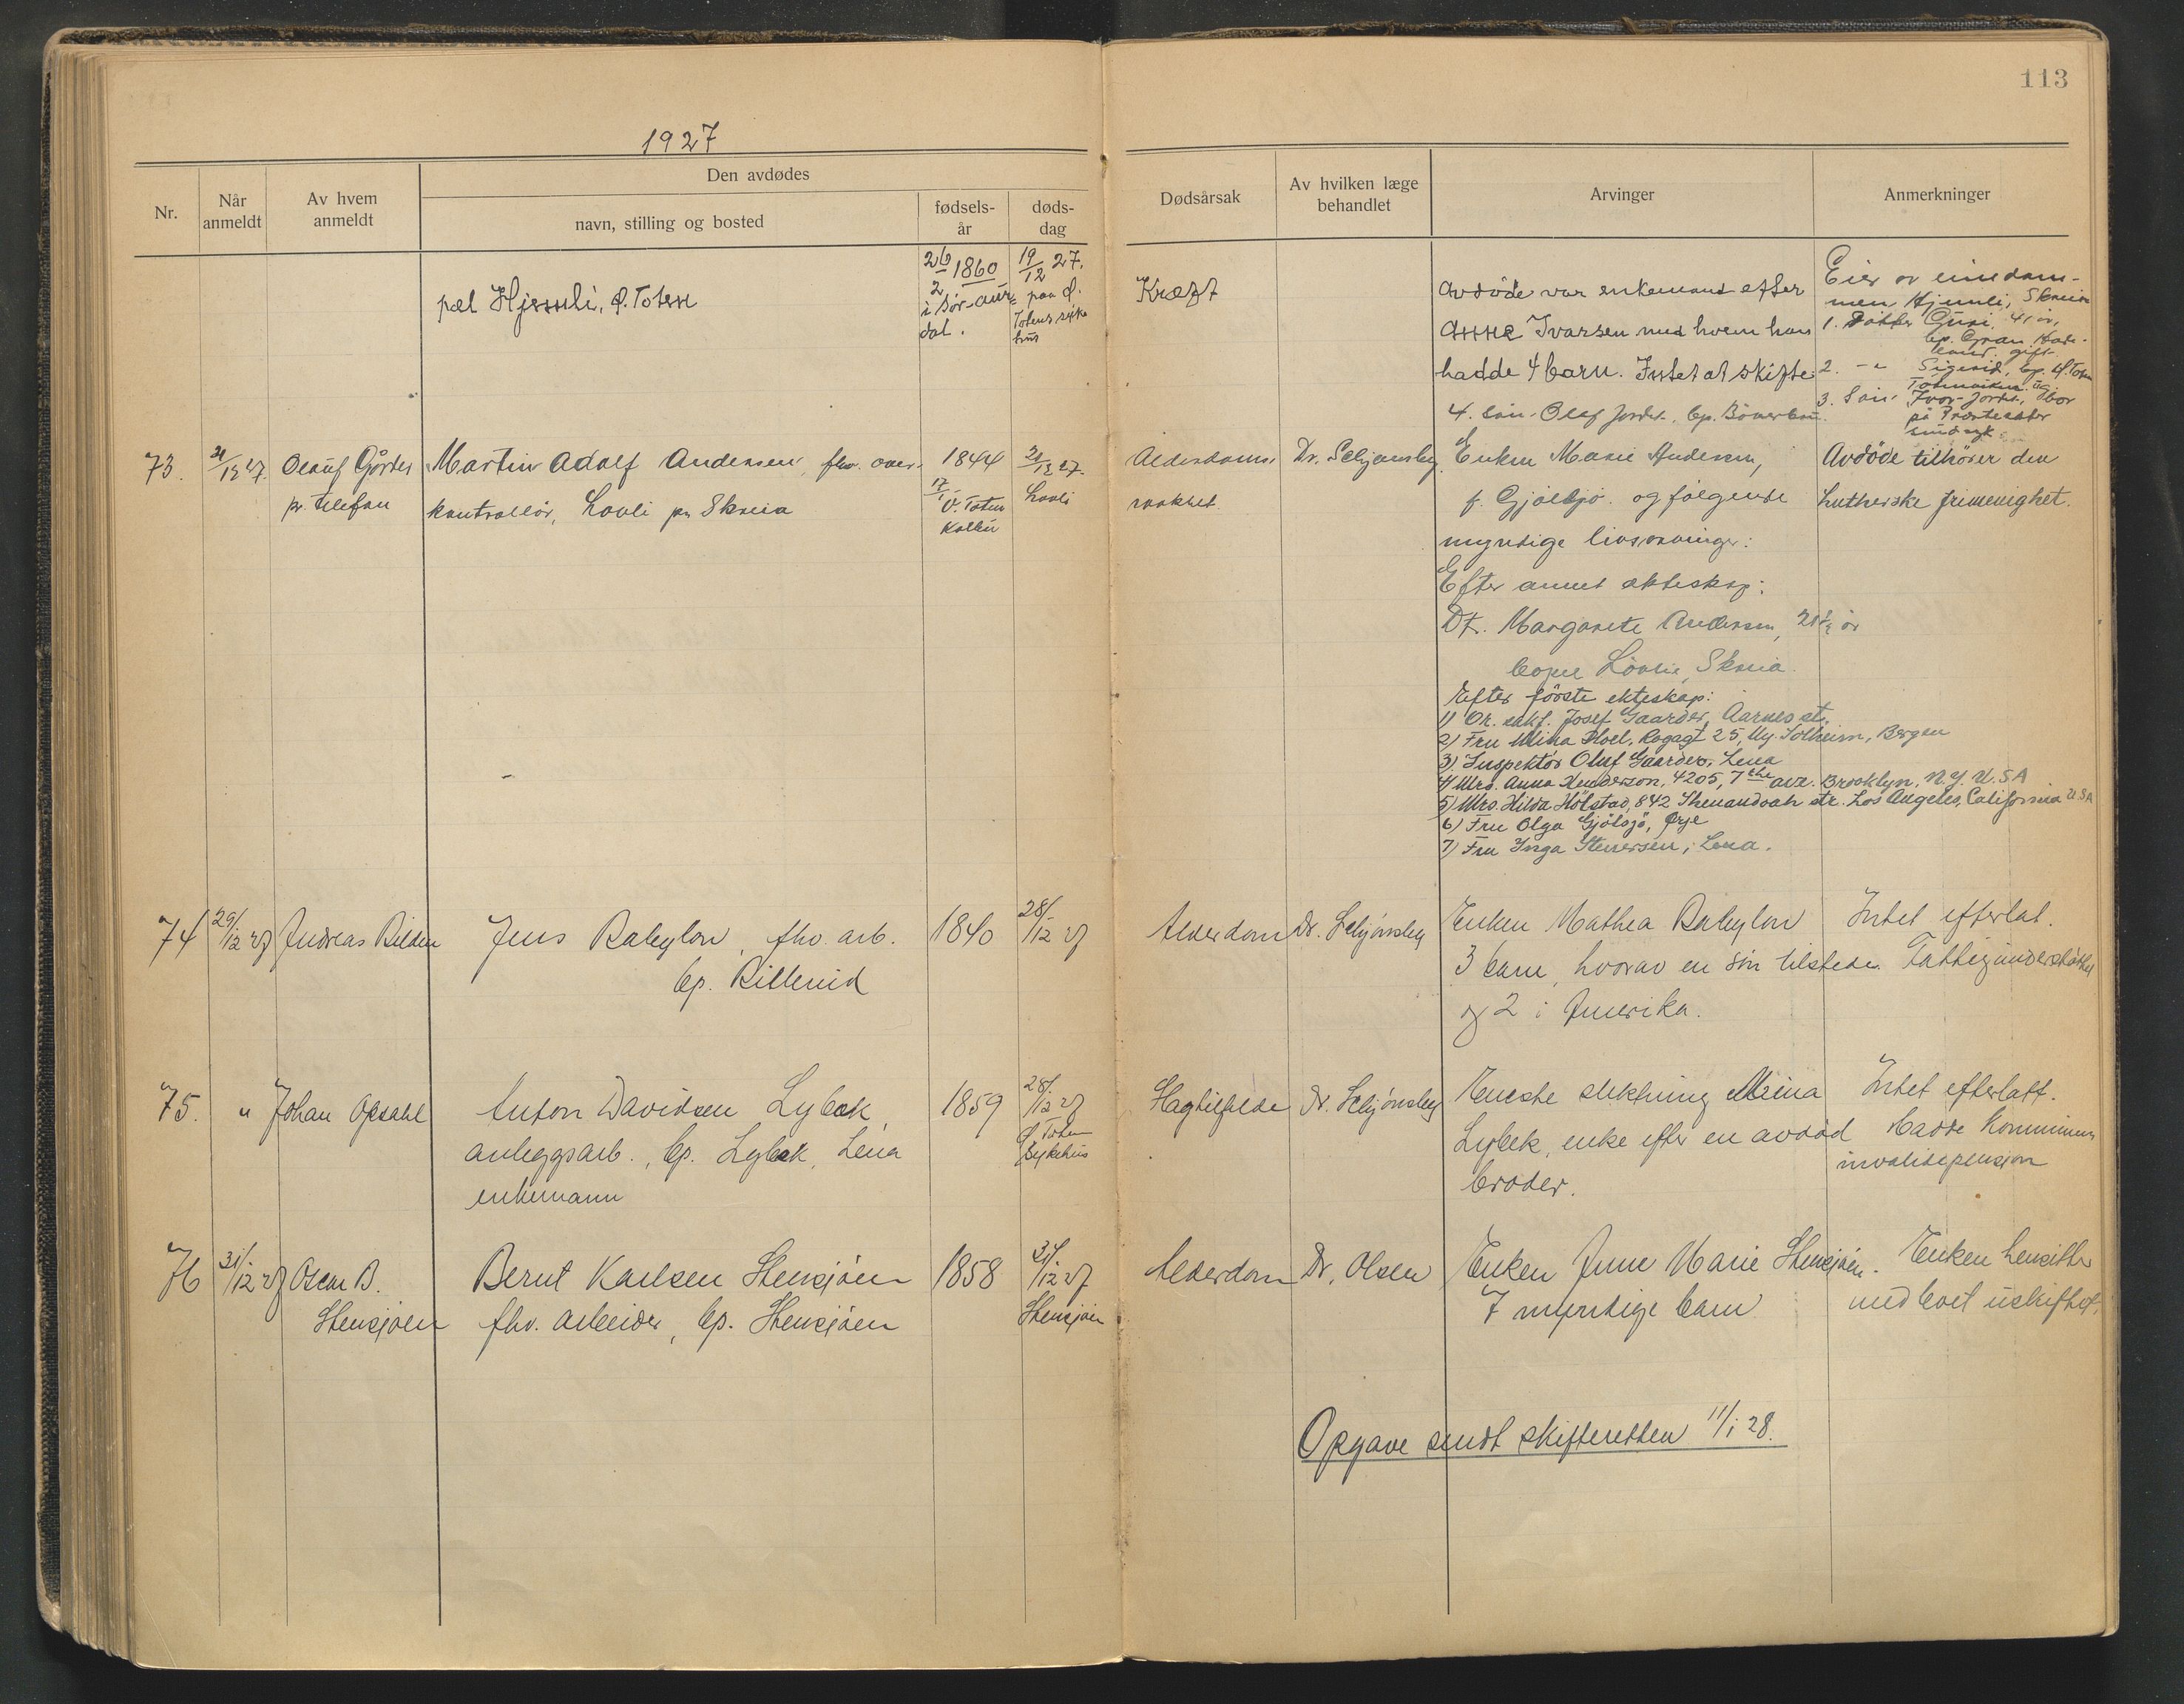 113
1927
Nr.
Når anmeldt
Av hvem anmeldt
Den avdødes
navn, stilling og bosted
fødsels- år
døds- dag
Dødsårsak
Av hvilken læge behandlet
Arvinger
Anmerkninger
pæl Hjemli, Ø. Toten
26/2 1860
i Sør-aur-
dal.
19/12 27.
paa Ø.
Totens syke
hus
Kræft
Avdøde var enkemand efter
Anne Ivarsen med hvem han
hadde 4 barn. Intet at skifte
4. Søn Olaf
Eier av eiendom-
men Hjemli, Skreia
1. Datter Guri, 41 år,
bp. Gran Hade-
land. gift
2. -"- Sigrid, bp. Ø. Toten
3. Søn Ivar
sindsyk
73.
21/12 27.
Olauf Gårder
pr. telefon
Martin Adolf Andersen, fhv. over-
kontrollør, Lovli pr. Skreia
1844
17/
V. Toten
Kolbu
21/12 27.
Lovli
Alderdoms-
svakhet
Dr. Schjønsby
Enken Marie Andersen,
f. Gjølsjø og følgende
myndige livsarvinger:
Efter annet ekteskap:
Dt. Margarete Andersen, 21½ år
bopæl Lövlie, Skreia.
Efter første ekteskap:
1) Or. sakf. Josef Gaarder, Aarnes st.
2) Fru Mina Hoel, 25, Ny. Solheim, Bergen
3) Inspektør Oluf Gaarder, Lena
4) Mrs. Anna Henderson, 4205, 7the ave. Brooklyn, N.Y. U.S.A
5) Mrs. Hilda Holstad, 842 Shenandoah str. Los Angeles, California U.S.A
6) Fru Olga Gjølsjø, Ørje
7) Fru Inga Stenersen, Lena.
Avdøde tilhører den
lutherske frimenighet.
74
29/12 27
Andreas Bilden
Jens Babylon, fhv. arb.
bp. Billerud
1840
28/12 27
Alderdom
Dr. Schjønsby
Enken Mathea Babylon
3 barn, hvorav en søn tilstede
og 2 i Amerika.
Intet efterlat.
Fattigunderstøttet
75.
"
Johan Opsahl
Anton Davidsen Lybæk,
anleggsarb., bp. Lybæk, Lena
enkemann
1859
28/12 27
Ø. Toten
Sykehus
Slagtilfælde
Dr. Schjønsby
Eneste slektning Mina
Lybek, enke efter en avdød
broder.
Intet efterlatt.
Hadde kommunens
invalidepensjon
76
31/12 27
Oscar B.
Stensjøen
Bernt Karlsen Stensjøen
fhv. arbeider, bp. Stensjøen
1858
31/12 27
Stensjøen
Alderdom
Dr. Olsen
Enken Anne Marie Stensjøen.
7 myndige barn
Enken hensitter
med boet uskiftet.
Opgave sendt skifteretten 11/1 28.